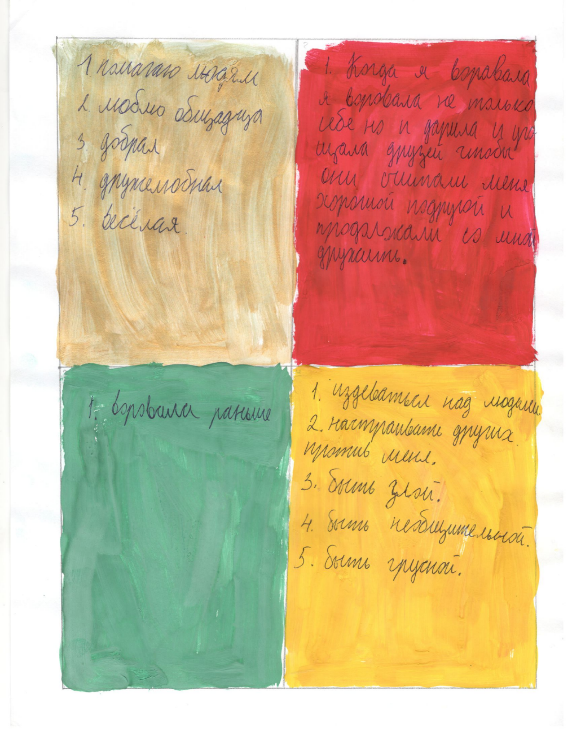 1 помагаю людям
2 люблю общадица
3 добрая
4. дружелюбная
5. весёлая
1. Когда я воравала
я воровала не только
себе но и дарила и уго
щала друзей чтобы
они считали меня
хорошой подругой и
продолжали со мной
дружить.
1. воровала раньше
1. издеваться над людьми
2. настраивать других
против меня.
3. быть злой.
4. быть необщительной.
5. быть грусной.